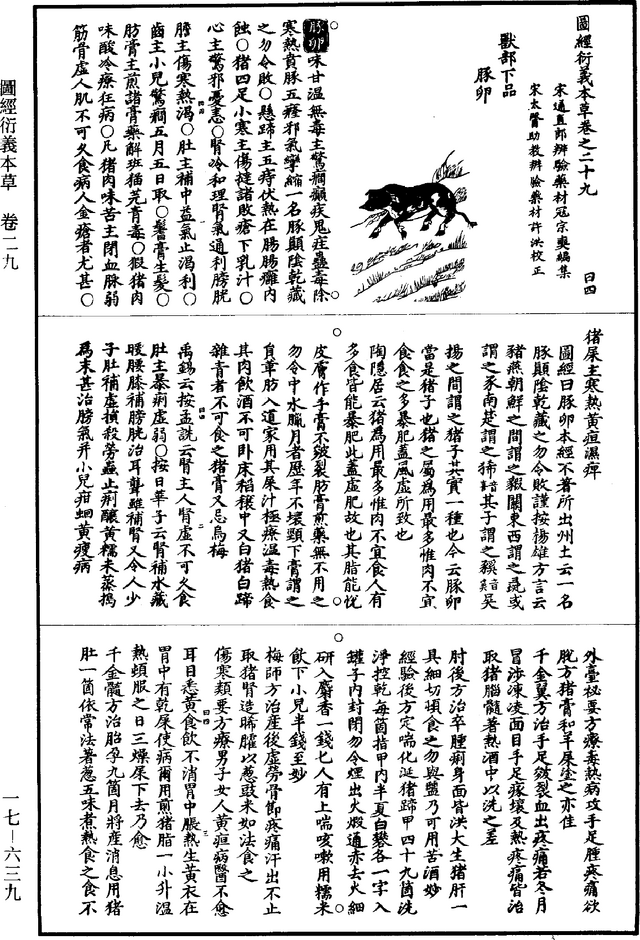 圖經衍義本草卷之二十九
宋通直郎辨驗藥材寇宗奭編集
宋太醫助教辨驗藥材許洪校正
曰四
獸部下品
豚卵
豚卵味甘溫無毒主驚癇癲疾鬼疰蠱毒除
寒熱賁豚五癃邪氣攣縮一名豚顛陰乾藏
之勿令敗○懸蹄主五痔伏熱在腸腸癰內
蝕○猪四足小寒主傷撻諸敗瘡下乳汁○
心主驚邪憂恚○腎冷和理腎氣通利膀胱
膽主傷寒熱渴○肚主補中益氣止渴利○
齒主小兒驚癇五月五日取○鬐膏生髮○
肪膏主煎諸膏藥解斑猫芫青毒○豭猪肉
味酸冷療狂病○凡猪肉味苦主閉血脉弱
筋骨虛人肌不可久食病人金瘡者尤甚○
猪屎主寒熱黃疸濕痺
圖經曰豚卵本經不著所出州土云一名
豚顛陰乾藏之勿令敗謹按楊雄方言云
豬燕朝鮮之間謂之豭關東西謂之彘或
謂之豕南楚謂之豨其子謂之豯吳
揚之間謂之猪子其實一種也今云豚卵
當是猪子也猪之屬為用最多惟肉不宜
食食之多暴肥蓋風虛所致也
陶隱居云猪為用最多惟肉不宜食人有
多食皆能暴肥此蓋虛肥故也其脂能悅
皮膚作手膏不皴裂肪膏煎藥無不用之
勿令中水臘月者歷年不壞頸下膏謂之
負革肪入道家用其屎汁極療溫毒熱食
其肉飲酒不可卧床稻穰中又白猪白蹄
雜青者不可食之猪膏又忌烏梅
禹錫云按孟詵云腎主人腎虛不可久食
肚主暴痢虛弱○按日華子云腎補水藏
暖腰膝補膀胱治耳聾雖補腎又令人少
子肚補虛損殺勞蟲止痢釀黃糯米蒸搗
為末甚治勞氣并小兒疳蛔黃瘦病
外臺祕要方療毒熱病攻手足腫疼痛欲
脫方猪膏和羊屎塗之亦佳
千金翼方治手足皴裂血出疼痛若冬月
冒涉凍凌面目手足瘃壞及熱疼痛皆治
取猪腦髓著熱酒中以洗之差
肘後方治卒腫痢身面皆洪大生猪肝一
具細切頓食之勿與鹽乃可用苦酒妙
經驗後方定喘化涎猪蹄甲四十九箇洗
淨控乾每箇指甲內半夏白礬各一字入
罐子內封閉勿令煙出火煅通赤去火細
研入麝香一錢七人有上喘咳嗽用糯米
飲下小兒半錢至妙
梅師方治產後虛勞骨節疼痛汗出不止
取猪腎造晞臛以葱豉米如法食之
傷寒類要方療男子女人黃疸病醫不愈
耳目悉黃食飲不消胃中脹熱生黃衣在
胃中有乾屎使病爾用煎猪脂一小升溫
熱頓服之日三燥屎下去乃愈
千金髓方治胎孕九箇月將產消息用猪
肚一箇依常法著葱五味煮熱食之食不
圖經衍義本草　卷二九
一七—六三九